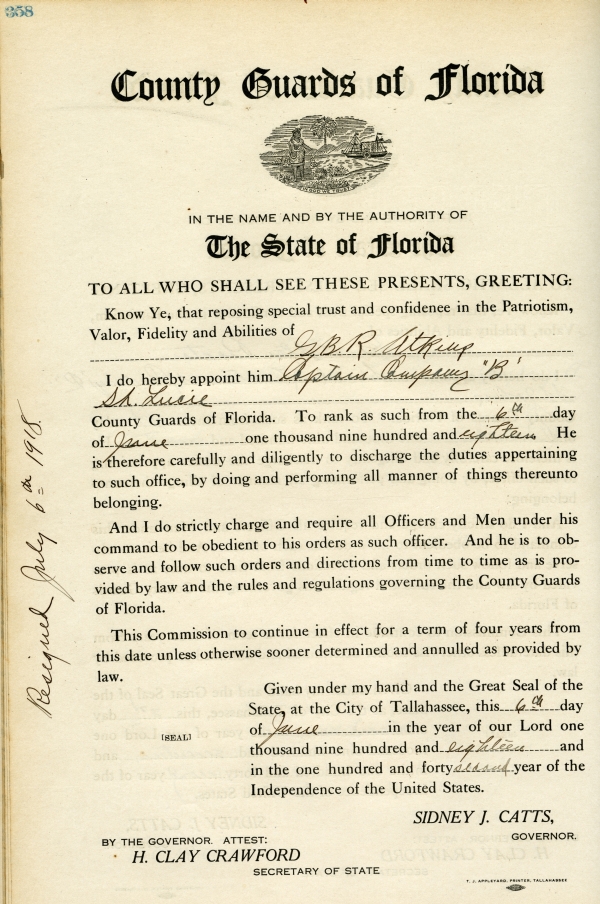 358
County Guards of Florida
IN GOD WE TRUST
IN THE NAME AND BY THE AUTHORITY OF
The State of Florida
TO ALL WHO SHALL SEE THESE PRESENTS, GREETING:
Know Ye, that reposing special trust and confidence in the Patriotism,
Valor, Fidelity and Abilities of
G B R Atkins
I do hereby appoint him Captain Company "B"
St. Lucie
County Guards of Florida. To rank as such from the 6th day
of June one thousand nine hundred and eighteen He
is therefore carefully and diligently to discharge the duties appertaining
to such office, by doing and performing all manner of things thereunto
belonging.
And I do strictly charge and require all Officers and Men under his
command to be obedient to his orders as such officer. And he is to ob-
serve and follow such orders and directions from time to time as is pro-
vided by law and the rules and regulations governing the County Guards
of Florida.
This Commission to continue in effect for a term of four years from
this date unless otherwise sooner determined and annulled as provided by
law.
Given under my hand and the Great Seal of the
State, at the City of Tallahassee, this 6th day
of June in the year of our Lord one
[SEAL]
thousand nine hundred and eighteen and
in the one hundred and forty second year of the
Independence of the United States.
SIDNEY J. CATTS,
GOVERNOR.
BY THE GOVERNOR. ATTEST:
H. CLAY CRAWFORD
SECRETARY OF STATE
T. J. APPLEYARD, PRINTER, TALLAHASSEE
Resigned July 6th 1918